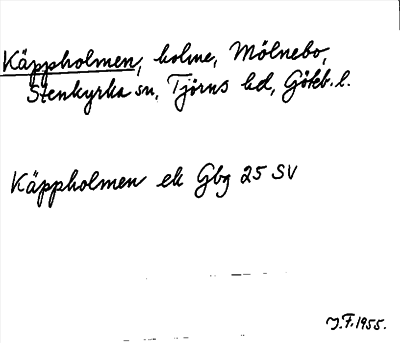 Käppholmen, holme, Mölnebo,
Stenkyrka sn, Tjörns hd, Göteb. l.
Käppholmen ek Gbg 25 SV
J.F. 1955.